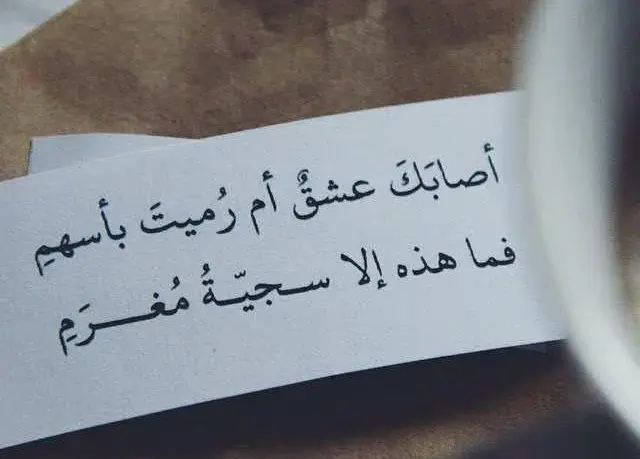 أصابَكَ عشقٌ أم رُميتَ بأسهمِ
فما هذه إلا سـجيّـةُ مُغـــرَمِ